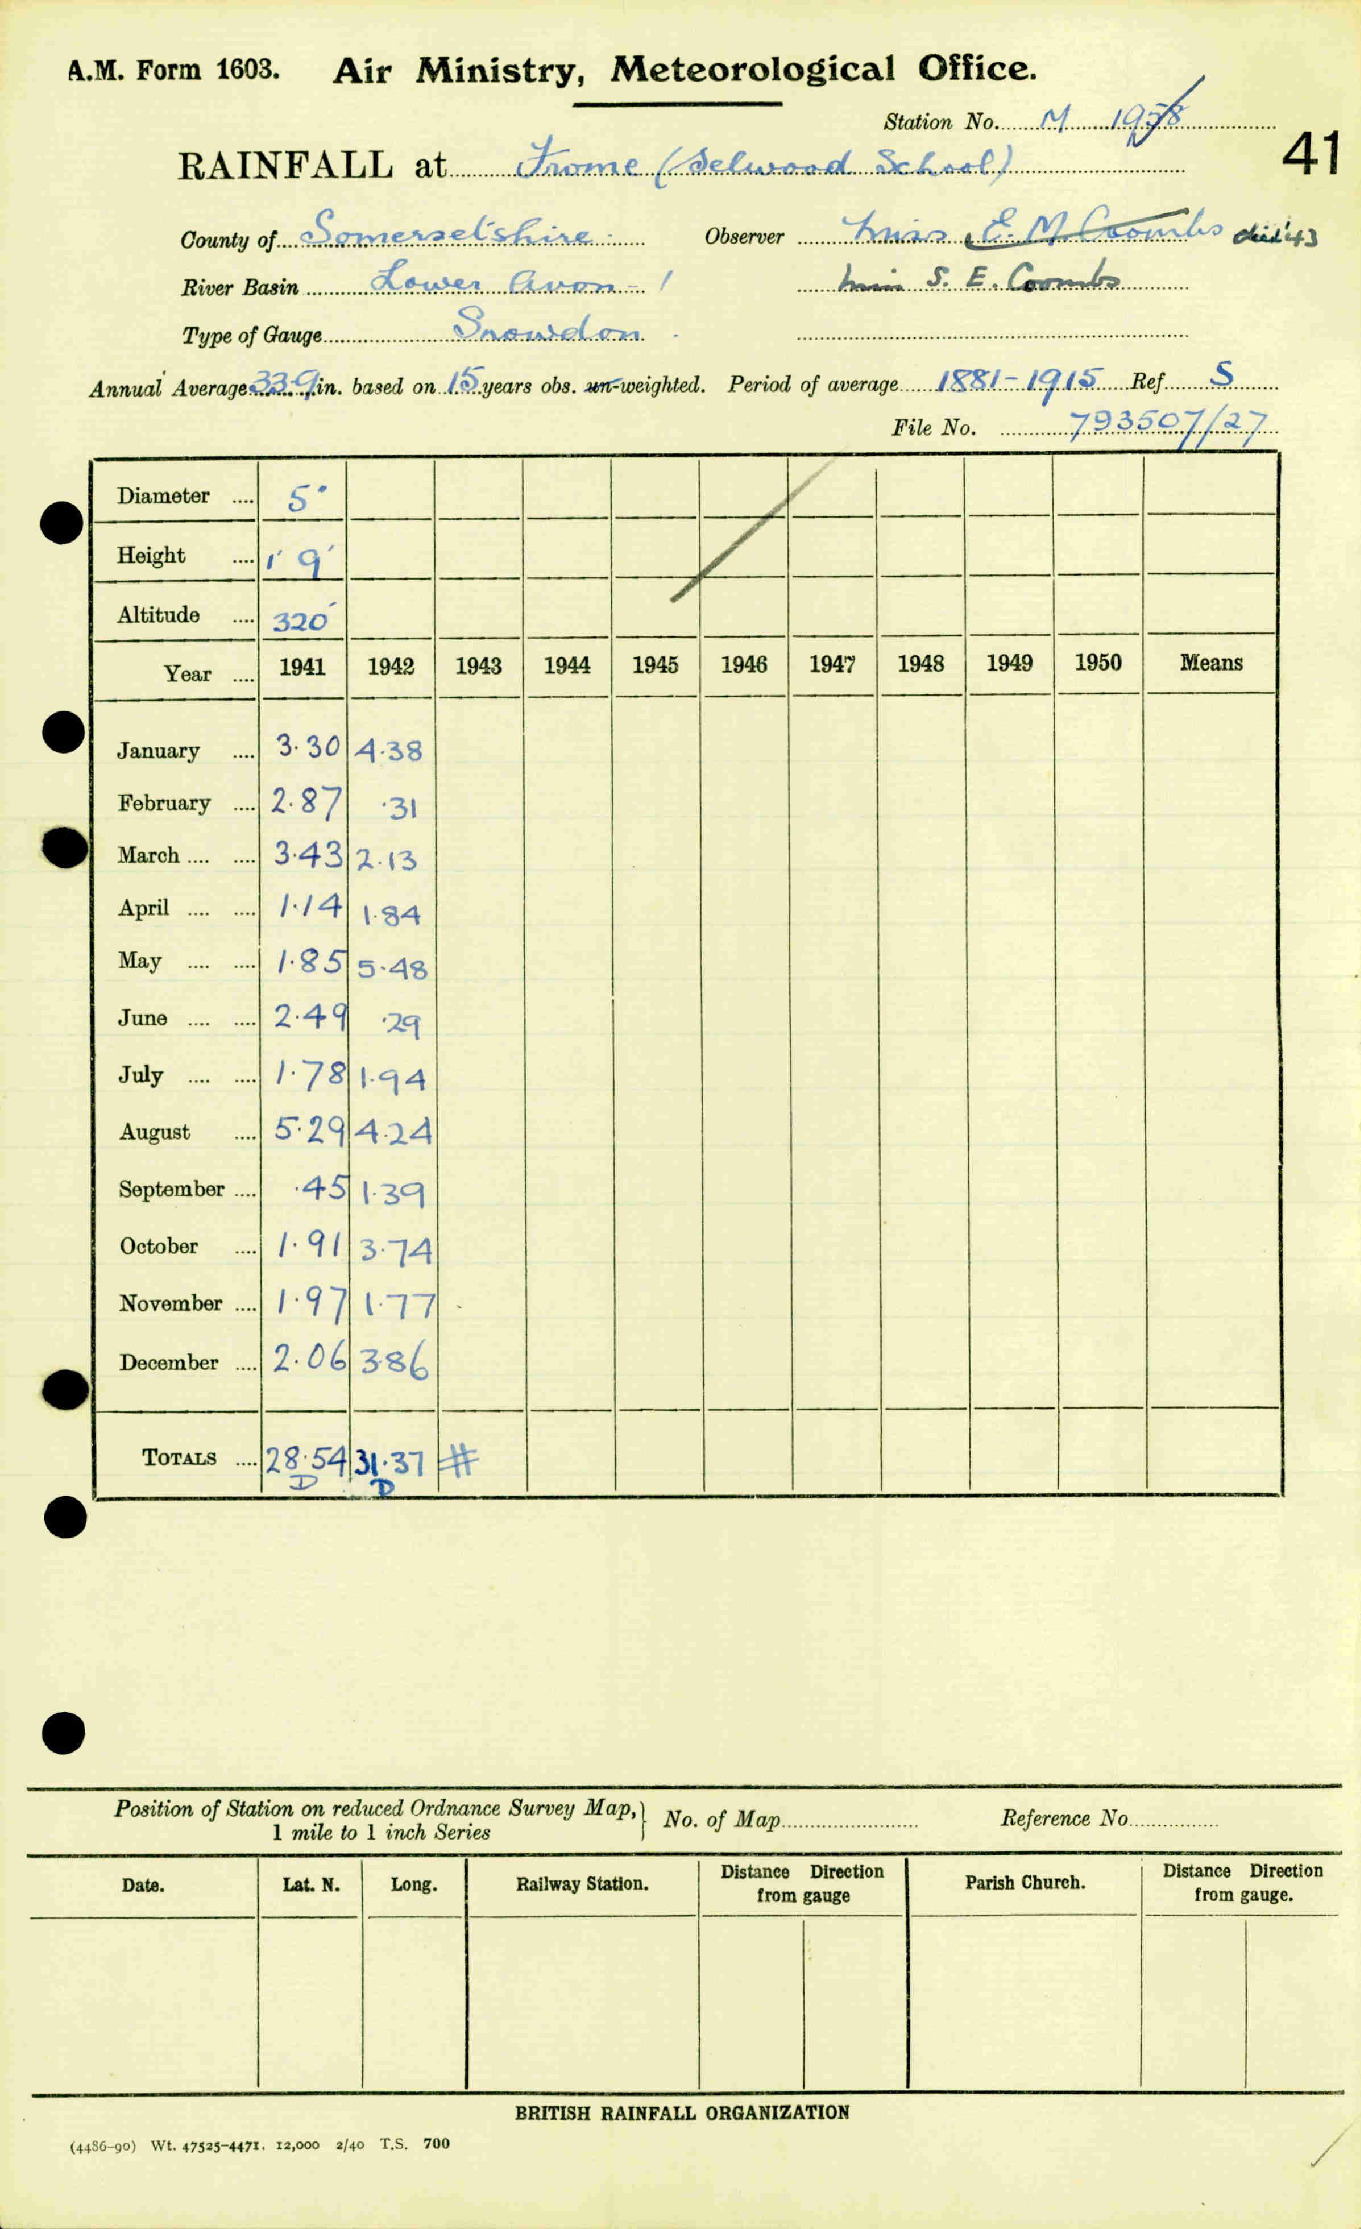 A.M. Form 1603. Air Ministry, Meteorological Office.
Station No. M 1938
41
RAINFALL at Frome (Selwood School)
County of Somersetshire. Observer Miss E. M. Coombs died '43
River Basin Lower Avon - 1 Miss S. E. Coombs
Type of Gauge Snowdon
Annual Average 33.9 in. based on 15 years obs. un-weighted. Period of average 1881-1915 Ref. S
File No. 793507/27
Diameter .... 5"
Height .... 1' 9"
Altitude .... 320'
Year .... 1941 1942 1943 1944 1945 1946 1947 1948 1949 1950 Means
January .... 3.30 4.38
February .... 2.87 .31
March .... .... 3.43 2.13
April .... .... 1.14 1.84
May .... .... 1.85 5.48
June .... .... 2.49 .29
July .... .... 1.78 1.94
August .... 5.29 4.24
September .... .45 1.39
October .... 1.91 3.74
November .... 1.97 1.77
December .... 2.06 3.86
TOTALS .... 28.54 31.37 #
D D
Position of Station on reduced Ordnance Survey Map, } No. of Map Reference No
1 mile to 1 inch Series
Date. Lat. N. Long. Railway Station. Distance Direction from gauge Parish Church. Distance Direction from gauge.
BRITISH RAINFALL ORGANIZATION
(4486-90) Wt. 47525-4471. 12,000 2/40 T.S. 700